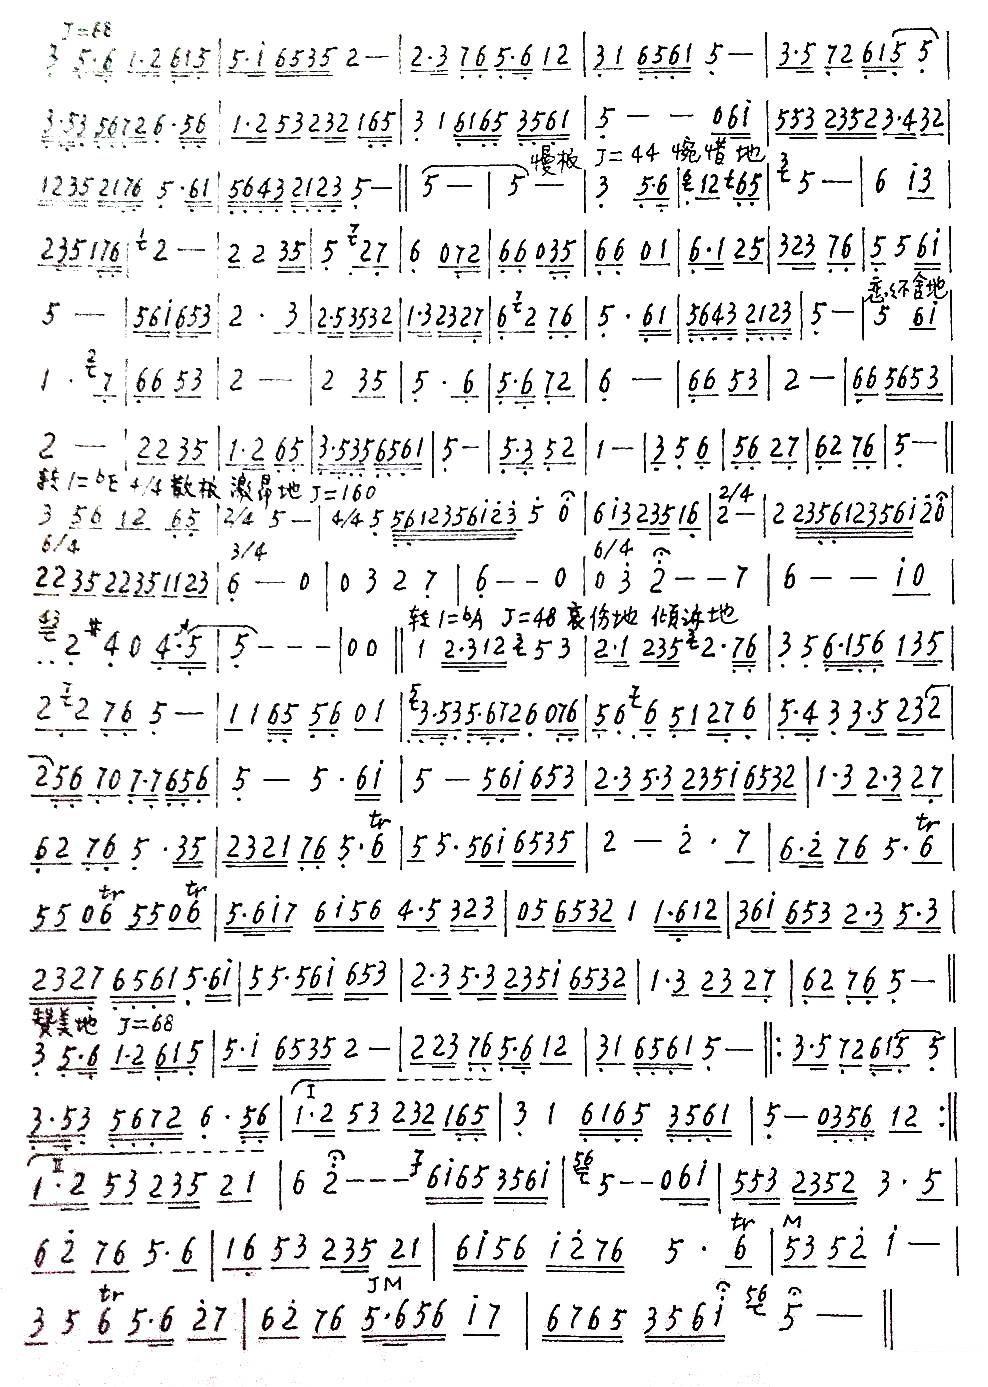 J=68
3 5·6 1·2 615 | 5·i 6535 2— | 2·3 76 5·6 12 | 31 6561 5— | 3·5 72 615 5 |
3·53 5672 6·56 | 1·2 53 232 165 | 3 1 6165 3561 | 5 — — 06i | 553 2352 3·432 |
慢板 J=44 惋惜地
1235 2176 5·61 | 5643 2123 5— || 5 — | 5 — | 3 5·6 | 12 65 | 3 5 — | 6 i3 |
235176 | 1 2 — | 2 2 35 | 5 7 27 | 6 072 | 66 035 | 66 01 | 6·1 25 | 323 76 | 5 5 6i |
恋恋不舍地
5 — | 56i653 | 2 · 3 | 2·53532 | 1·32327 | 6 7 2 76 | 5 · 61 | 5643 2123 | 5 — | 5 6i |
1 · 2 7 | 66 53 | 2 — | 2 35 | 5 · 6 | 5·6 72 | 6 — | 66 53 | 2 — | 66 5653 |
2 — | 22 35 | 1·2 65 | 3·5356561 | 5— | 5·3 52 | 1— | 3 5 6 | 56 27 | 62 76 | 5— ||
转1=bE 4/4 散板 激昂地 J=160
3 56 12 65 | 2/4 5 — | 4/4 5 561235612̇3̇ 5̇ 0 | 6i32351 6 | 2/4 2— | 2 2356123561̇2̇0 |
6/4 3/4 6/4
2235223511 23 | 6 — 0 | 0 3 2 7 | 6 — — 0 | 0 3̇ 2̇ — — 7 | 6 — — i0 |
转1=bA J=48 哀伤地 倾诉地
43 2 #4 0 4·5 | 5 — — — | 00 || 1 2·312 3 5 3 | 2·1 235 3 2·76 | 3 5 6·156 135 |
2 7 2 76 5 — | 1 1 65 56 01 | 5 3·535·6726 076 | 56 7 6 51 276 | 5·4 3 3·5 232 |
256 70 7·7656 | 5 — 5 · 6i | 5 — 56i 653 | 2·3 5·3 235i 6532 | 1·3 2·3 27 |
62 76 5 · 35 | 2321 76 5·tr6 | 5 5·56i 6535 | 2 — 2̇ · 7 | 6·2̇ 76 5·tr6 |
55 0tr6 550tr6 | 5·6i7 6i56 4·5 323 | 05 6532 1 1·612 | 36i 653 2·3 5·3 |
2327 6561 5·6i | 55·56i 653 | 2·3 5·3 235i 6532 | 1·3 23 27 | 62 76 5— ||
赞美地 J=68
3 5·6 1·2 615 | 5·i 6535 2 — | 223 76 5·6 12 | 31 6561 5— ||: 3·5 72 615 5 |
3·53 5672 6 · 56 | I 1·2 53 232 165 | 3 1 6165 3561 | 5— 0356 12 :||
II 1·2 53 235 21 | 6 2̇ — — — 7 6i65 356i | 56 5 — — 06i | 553 2352 3 · 5 |
62̇ 76 5·6 | 16 53 235 21 | 6i56 i2̇76 5 · tr6 | M 53 52̇ i — |
3 5 tr6 5·6 2̇7 | 62̇ 76 JM 5·656 i7 | 6765 356i 56 5 — ||